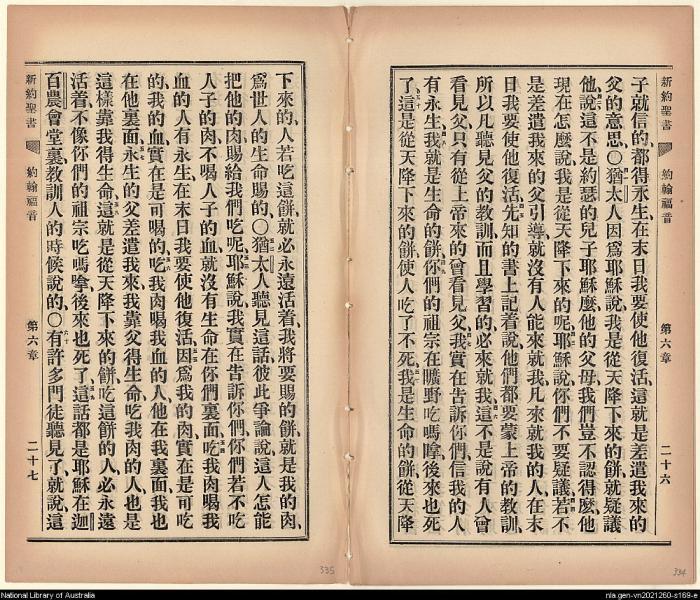 新約聖書 約翰福音 第六章 二十六
子就信的、都得永生、在末日我要使他復活、這就是差遣我來的
父的意思、〇猶太人因爲耶穌說、我是從天降下來的餅、就疑議
他、說這不是約瑟的兒子耶穌麼、他的父母、我們豈不認得麼、他
現在怎麼說、我是從天降下來的呢、耶穌說、你們不要疑議、若不
是差遣我來的父引導、就沒有人能來就我、凡來就我的人、在末
日我要使他復活、先知的書上記着說、他們都要蒙上帝的教訓、
所以凡聽見父的教訓、而且學習的、必來就我、這不是說有人曾
看見父、只有從上帝來的、曾看見父、我實在告訴你們、信我的人
有永生、我就是生命的餅、你們的祖宗在曠野吃嗎嗱、後來也死
了、這是從天降下來的餅、使人吃了不死、我是生命的餅、從天降
新約聖書 約翰福音 第六章 二十七
下來的、人若吃這餅、就必永遠活着、我將要賜的餅、就是我的肉、
爲世人的生命賜的、〇猶太人聽見這話、彼此爭論說、這人怎能
把他的肉賜給我們吃呢、耶穌說、我實在告訴你們、你們若不吃
人子的肉、不喝人子的血、就沒有生命在你們裏面、吃我肉喝我
血的人有永生、在末日我要使他復活、因爲我的肉實在是可吃
的、我的血實在是可喝的、吃我肉喝我血的人、他在我裏面、我也
在他裏面、永生的父差遣我來、我靠父得生命、吃我肉的人、也是
這樣靠我得生命、這就是從天降下來的餅、吃這餅的人、必永遠
活着、不像你們的祖宗吃嗎嗱、後來也死了、這話都是耶穌在迦
百農會堂裏教訓人的時候說的、〇有許多門徒聽見了、就說、這
335
334
National Library of Australia
nla.gen-vn2021260-s169-e